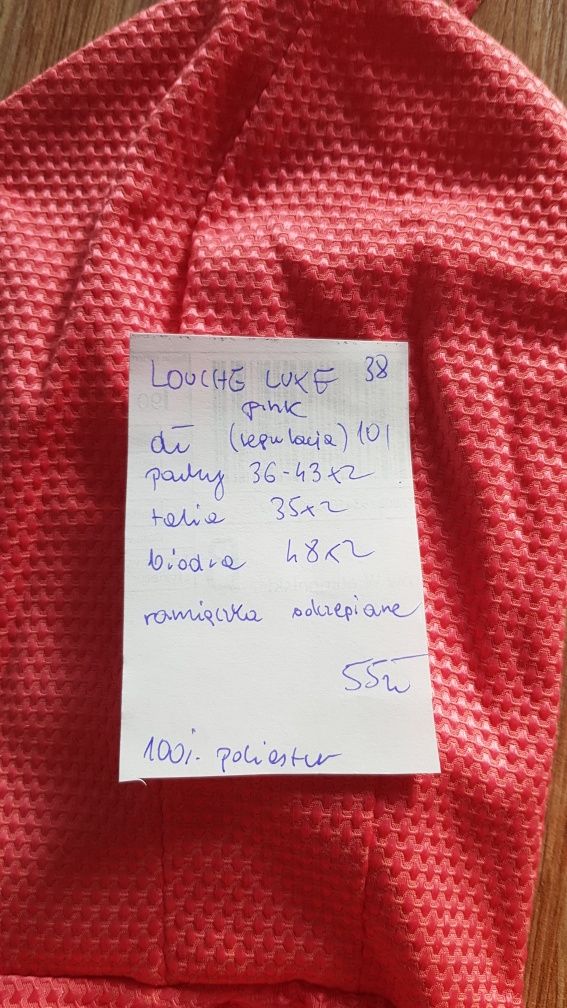 LOUCHE LUXE 38
pink
dł (regulacja) 101
pachy 36-43x2
talia 35x2
biodra 48x2
ramiączka odczepiane
55zł
100% poliester